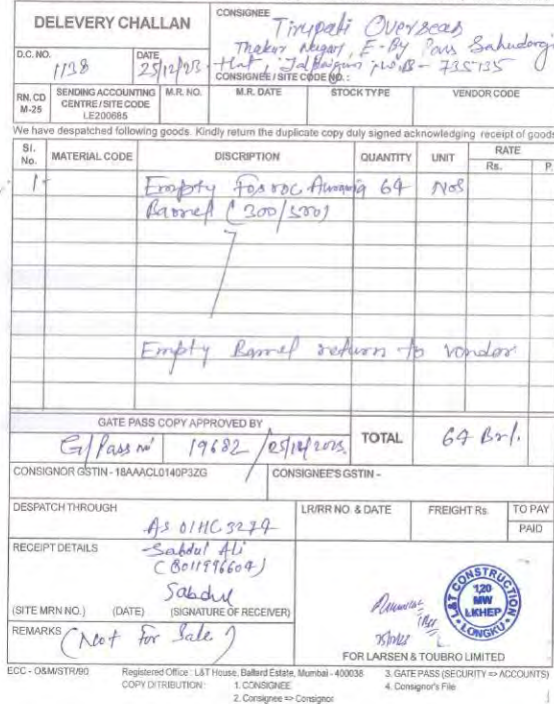 DELEVERY CHALLAN
CONSIGNEE
Tirupati Overseas
Thakur Nagar, E-By Pass Sahudangi
Hat, Jalpaiguri 735135
CONSIGNEE / SITE CODE NO. :
D.C. NO.
1138
DATE
25/12/23
RN. CD
M-25
SENDING ACCOUNTING
CENTRE / SITE CODE
LE200685
M.R. NO.
M.R. DATE
STOCK TYPE
VENDOR CODE
We have despatched following goods. Kindly return the duplicate copy duly signed acknowledging receipt of goods
SI. No.
MATERIAL CODE
DISCRIPTION
QUANTITY
UNIT
RATE
Rs.
P.
1-
Empty Fosroc 64 Nos
Barrel (300/500)
Empty Barrel return to vendor
GATE PASS COPY APPROVED BY
G/Pass no 19682 / 25/12/2023
TOTAL
64 Brl.
CONSIGNOR GSTIN - 18AAACL0140P3ZG
CONSIGNEE'S GSTIN -
DESPATCH THROUGH
AS 01HC 3274
LR/RR NO. & DATE
FREIGHT Rs.
TO PAY
PAID
RECEIPT DETAILS
Sabdul Ali
(8011996604)
Sabdul
(SITE MRN NO.) (DATE) (SIGNATURE OF RECEIVER)
L&T CONSTRUCTION
120
MW
LKHEP
LONGKU
REMARKS (Not For Sale)
FOR LARSEN & TOUBRO LIMITED
ECC - O&M/STR/90
Registered Office : L&T House, Ballard Estate, Mumbai - 400038
COPY DITRIBUTION : 1. CONSIGNEE
2. Consignee => Consignor
3. GATE PASS (SECURITY => ACCOUNTS)
4. Consignor's File